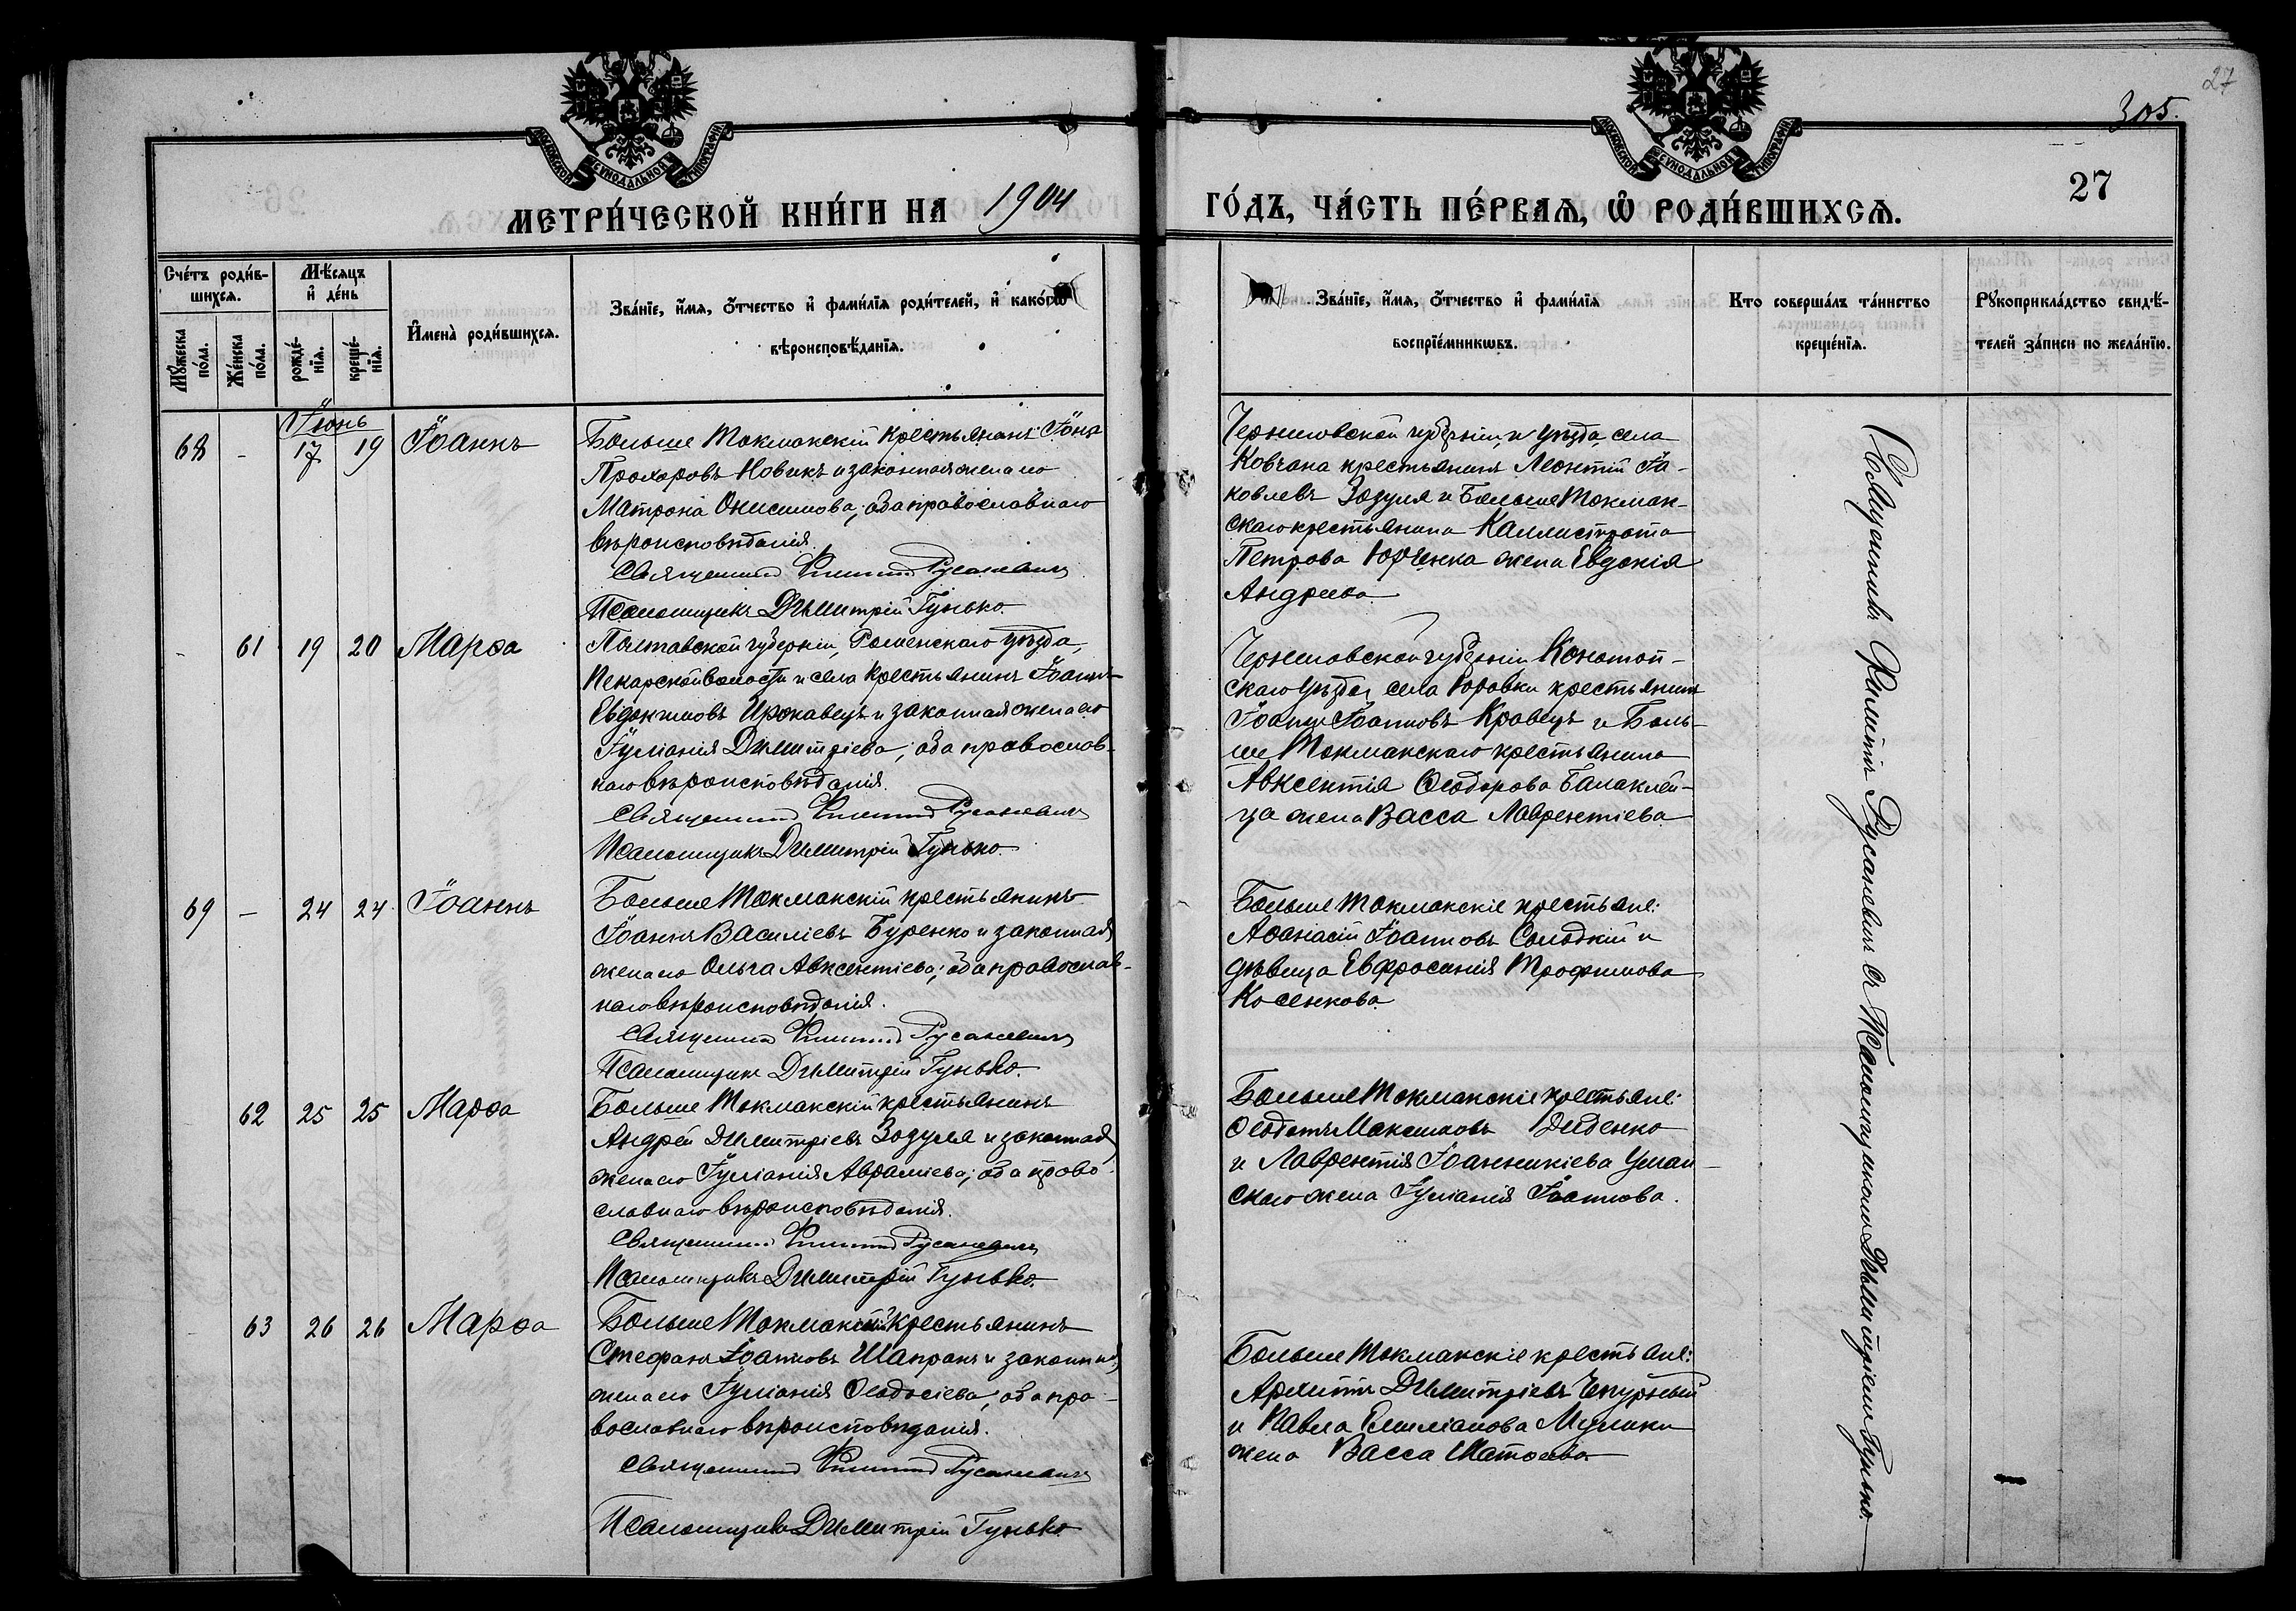 27
305.
27
МОСКОВСКОЙ СѴНОДАЛЬНОЙ ТИПОГРАФІИ
МОСКОВСКОЙ СѴНОДАЛЬНОЙ ТИПОГРАФІИ
МЕТРИ́ЧЕСКОЙ КНИ́ГИ НА 1904
ГО́ДЪ, ЧА́СТЬ ПЕ́РВАЯ, Ѡ РОДИ́ВШИХСЯ.
Сче́тъ роди́в-
шихся.
Мꙋжеска по́ла.
Же́нска по́ла.
Мѣ́сяцъ
и҆ де́нь
рожде́-
нїя.
креще́-
нїя.
И҆мена̀ роди́вшихся.
Зва́нїе, и҆́мя, ѻ҆́тчество и҆ фами́лїя роди́телей, и҆ како́гѡ
вѣроисповѣ́данїя.
Зва́нїе, и҆́мя, ѻ҆́тчество и҆ фами́лїя
воспрїе́мникѡвъ.
Кто соверша́лъ та́инство
креще́нїя.
Рꙋкоприкла́дство свидѣ́-
телей за́писи по жела́нїю.
Іюнь
68 - 17 19 Іоаннъ
Больше Токмакскій крестьянинъ Іона
Прохоровъ Новикъ и законная жена его
Матрона Онисимова; оба православнаго
вѣроисповѣданія.
Священникъ Филиппъ Русаневичъ
Псаломщикъ Димитрій Гунько
Черниговской губерніи и уѣзда, села
Ковчана крестьянинъ Леонтій Іа-
ковлевъ Зозуля и Больше Токмак-
скаго крестьянина Каллистрата
Петрова Юрченка жена Евдокія
Андреева.
- 61 19 20 Марѳа
Полтавской губерніи, Роменскаго уѣзда,
Пекарской волости и села крестьянинъ Іоаннъ
Евдокимовъ Ирокавецъ и законная жена его
Іуліанія Димитріева; оба православ-
наго вѣроисповѣданія.
Священникъ Филиппъ Русаневичъ
Псаломщикъ Димитрій Гунько.
Черниговской губерніи Конотоп-
скаго уѣзда, села Юровки крестьянинъ
Іоаннъ Іоанновъ Кравецъ и Боль-
ше Токмакскаго крестьянина
Авксентія Ѳеодорова Балаклей-
ца жена Васса Лаврентіева
69 - 24 24 Іоаннъ
Больше Токмакскій крестьянинъ
Іоаннъ Василіевъ Буренко и законная
жена его Ольга Авксентіева; оба православ-
наго вѣроисповѣданія.
Священникъ Филиппъ Русаневичъ
Псаломщикъ Димитрій Гунько.
Больше Токмакскіе крестьяне:
Аѳанасій Іоанновъ Солодкій и
дѣвица Евфросинія Трофимова
Косенкова.
62 25 25 Марѳа
Больше Токмакскій крестьянинъ
Андрей Димитріевъ Зозуля и законная
жена его Іуліанія Авраміева; оба право-
славнаго вѣроисповѣданія.
Священникъ Филиппъ Русаневичъ
Псаломщикъ Димитрій Гунько.
Больше Токмакскіе крестьяне:
Ѳеодотъ Максимовъ Диденко
и Лаврентія Іоанникіева Уман-
скаго жена Іуліанія Іоаннова.
63 26 26 Марѳа
Больше Токмакскій крестьянинъ
Стефанъ Іоанновъ Шапранъ и законная
жена его Іуліанія Ѳеодосіева; оба пра-
вославнаго вѣроисповѣданія.
Священникъ Филиппъ Русаневичъ
Псаломщикъ Димитрій Гунько
Больше Токмакскіе крестьяне:
Архиппъ Димитріевъ Чепурный
и Павла Емиліанова Мулики
жена Васса Матѳеева
Священникъ Филиппъ Русаневичъ съ Псаломщикомъ Димитріемъ Гунько.